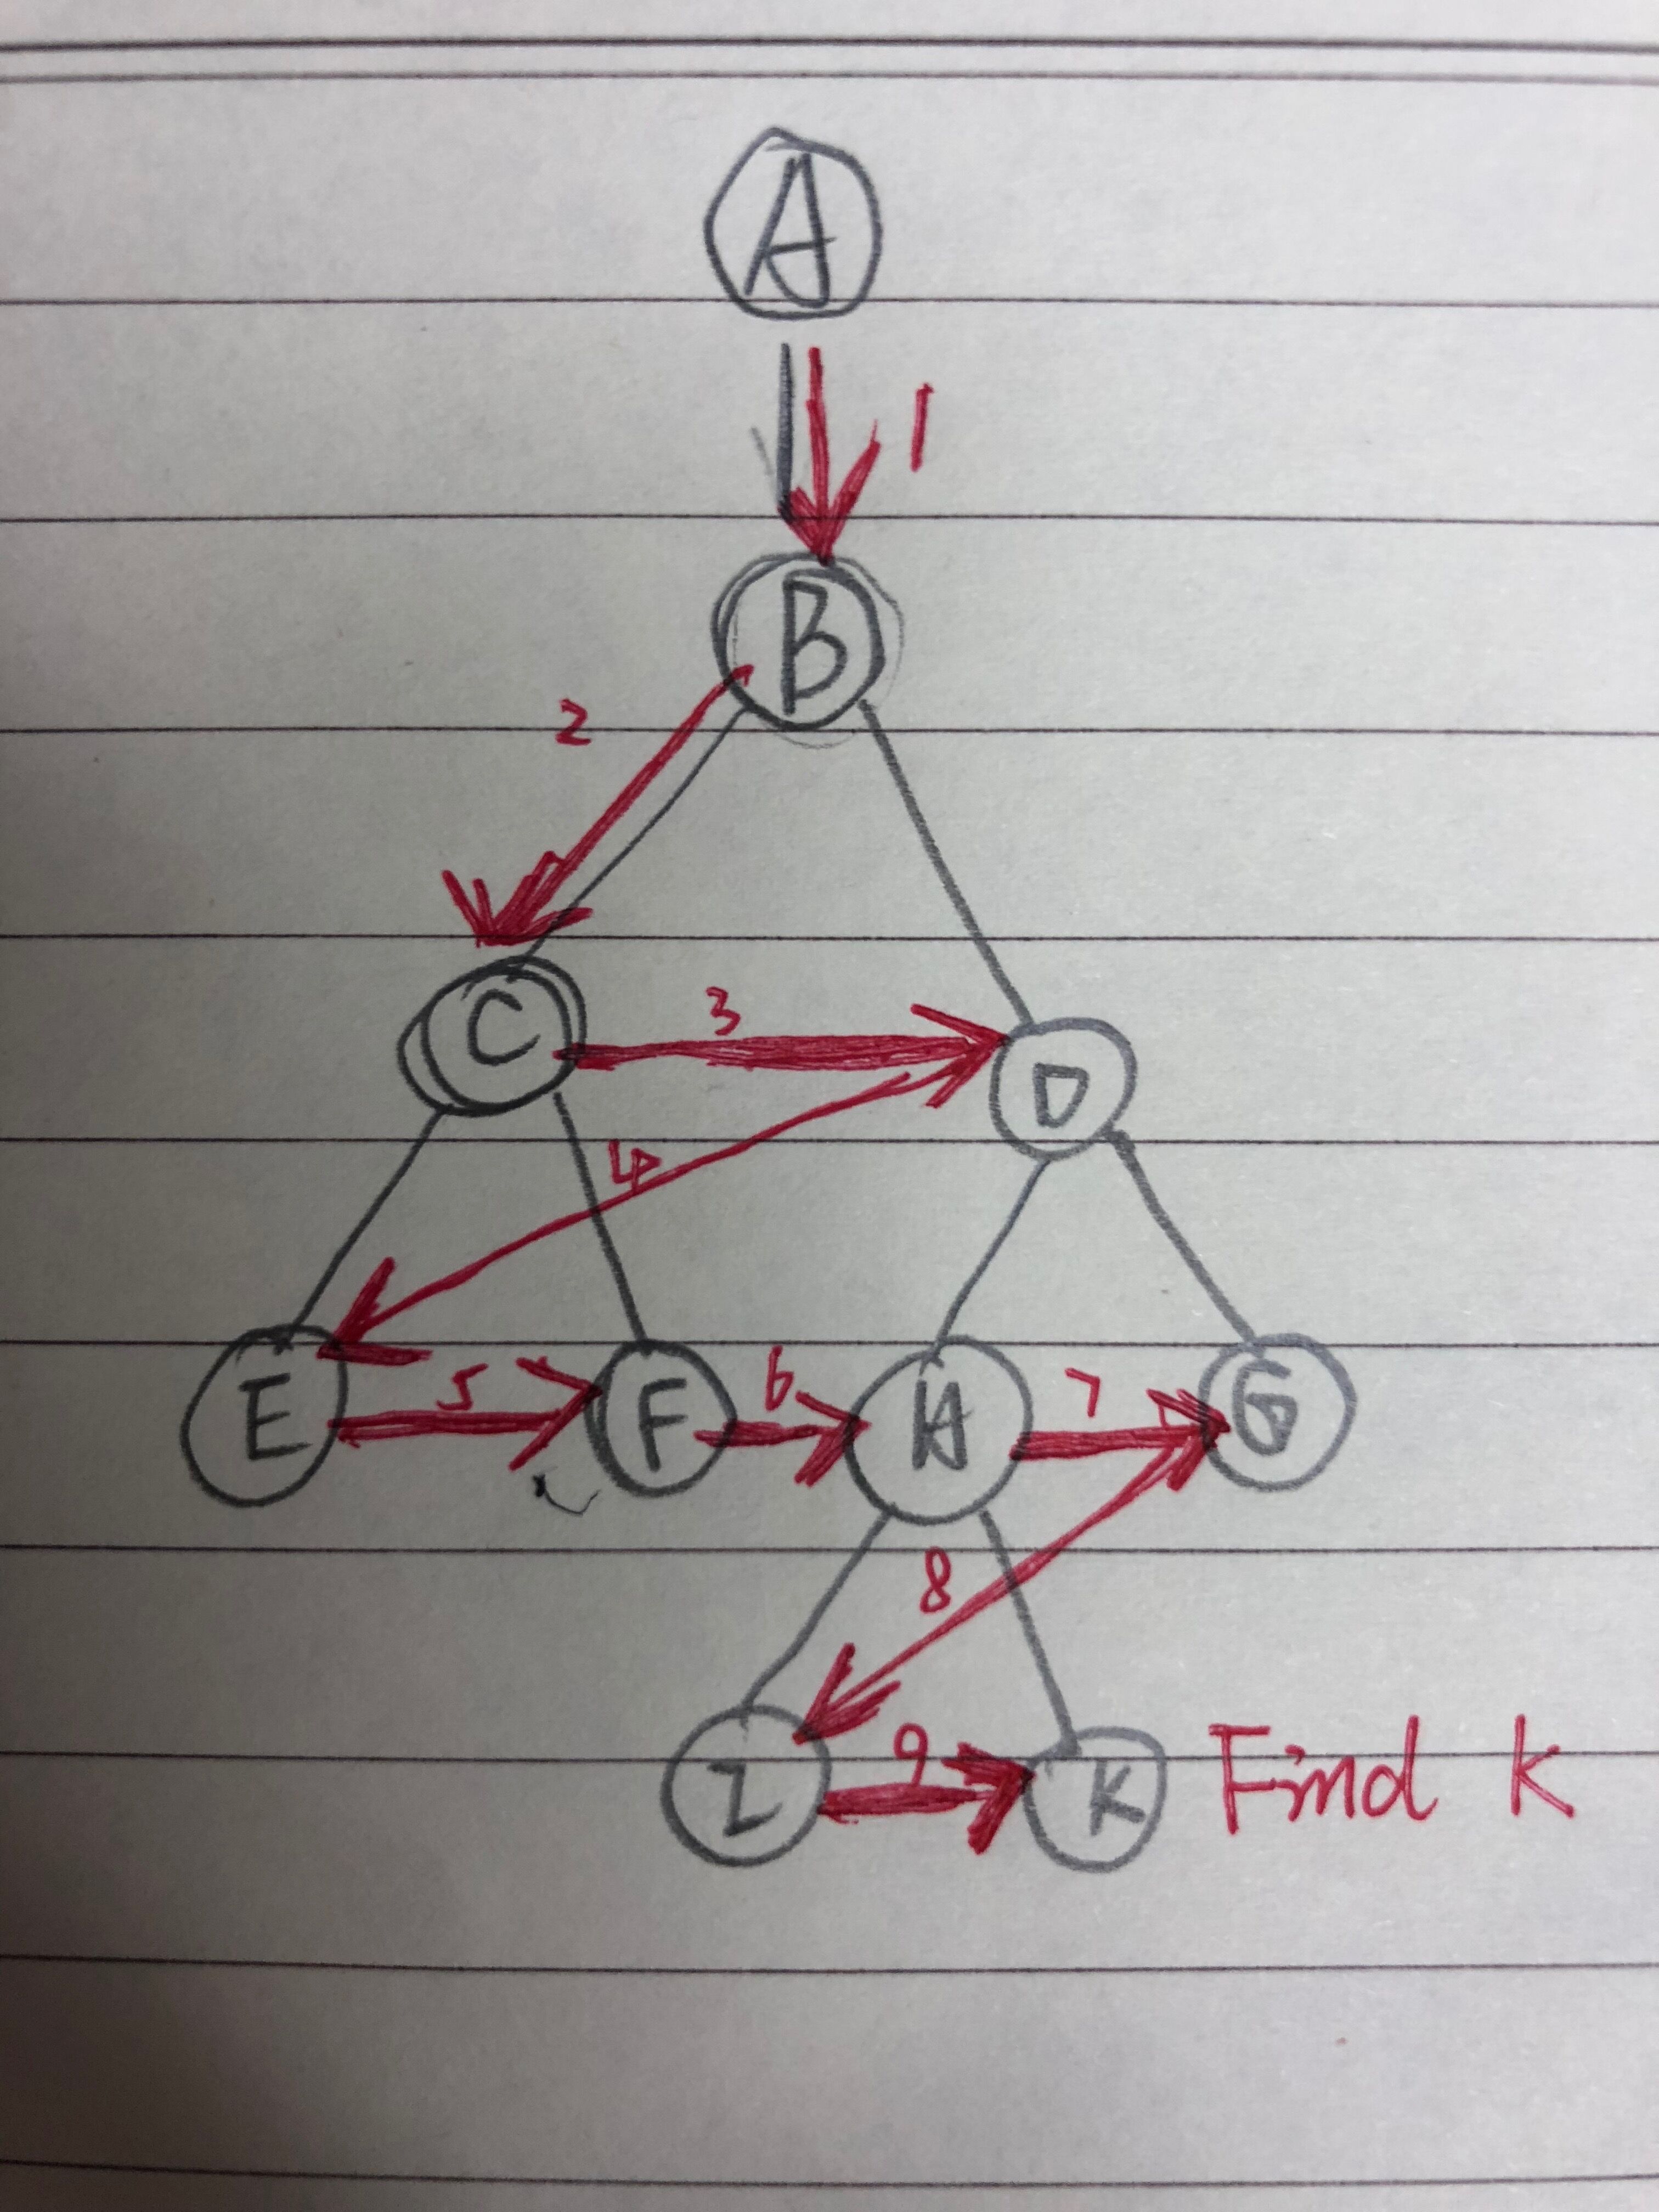 A
1
B
2
C
3
D
4
E
5
F
6
H
7
G
8
I
9
K
Find k